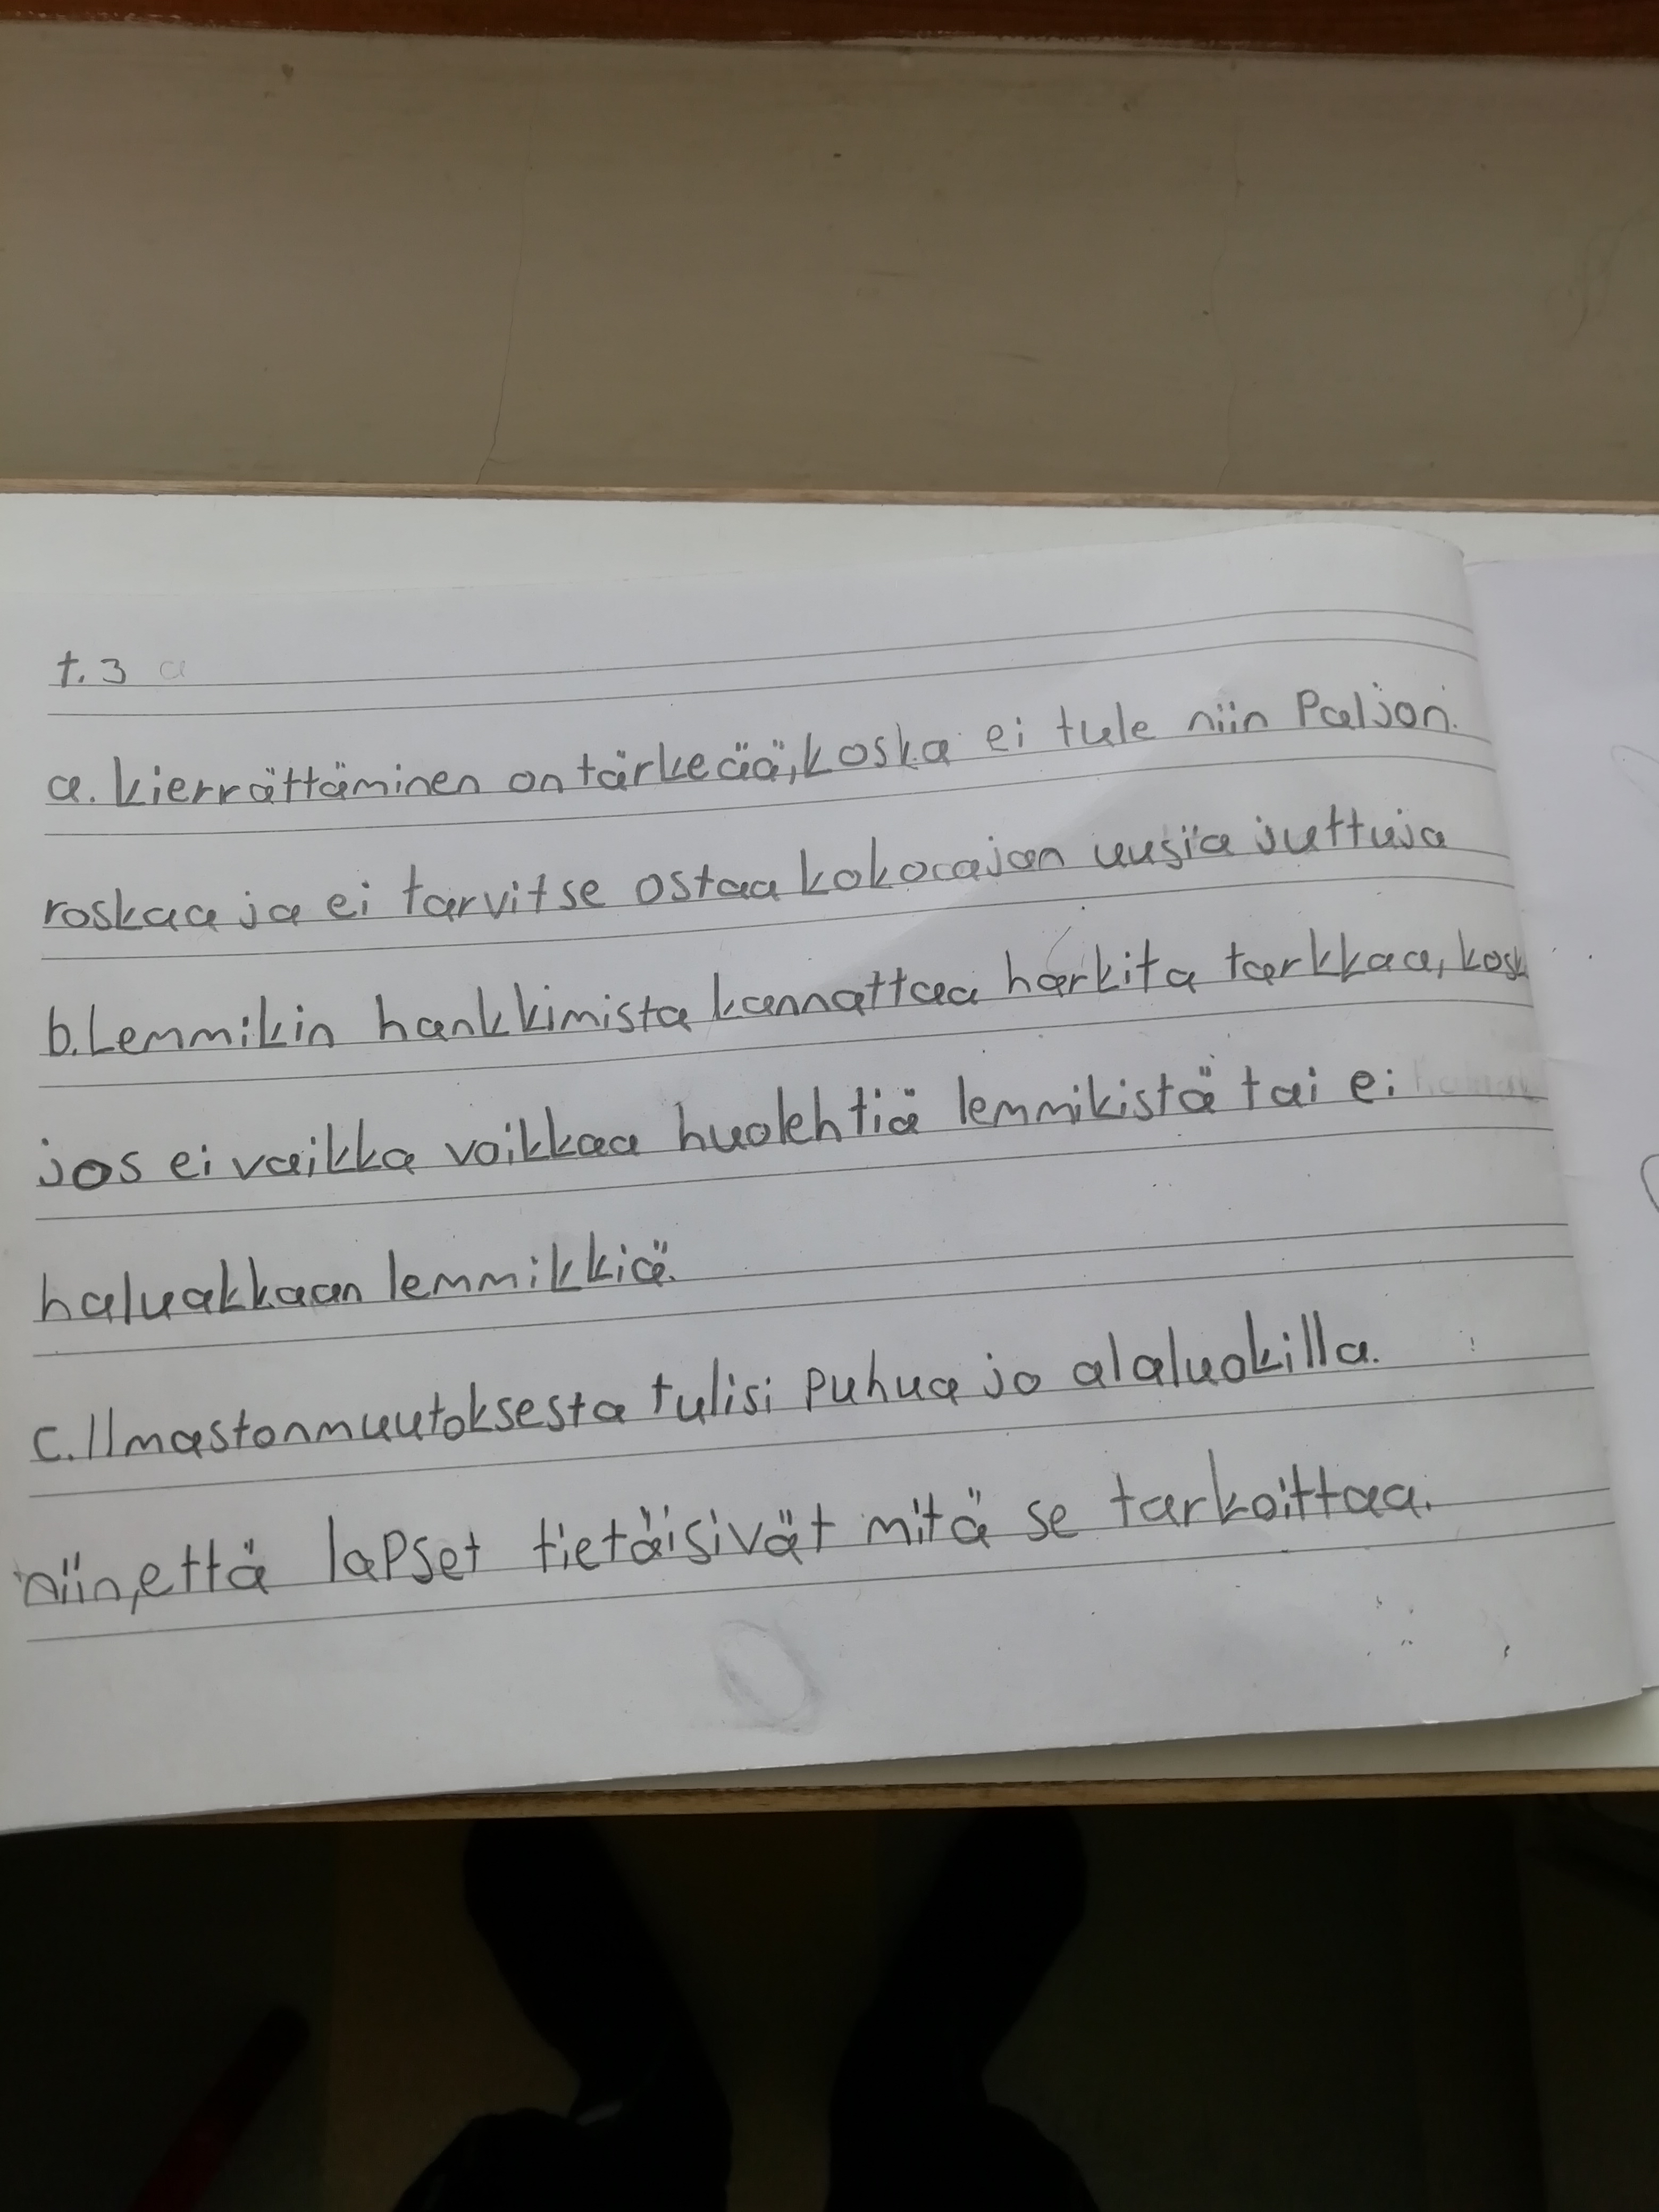 t. 3 a
a. kierrättäminen on tärkeää, koska ei tule niin Paljon.
roskaa ja ei tarvitse ostaa kokoajan uusia juttuja
b. Lemmikin hankkimista kannattaa harkita tarkkaa, kosk
jos ei vaikka voikkaa huolehtia lemmikistä tai ei
haluakkaan lemmikkiä.
c. Ilmastonmuutoksesta tulisi puhua jo alaluokilla.
niin, että lapset tietäisivät mitä se tarkoittaa.